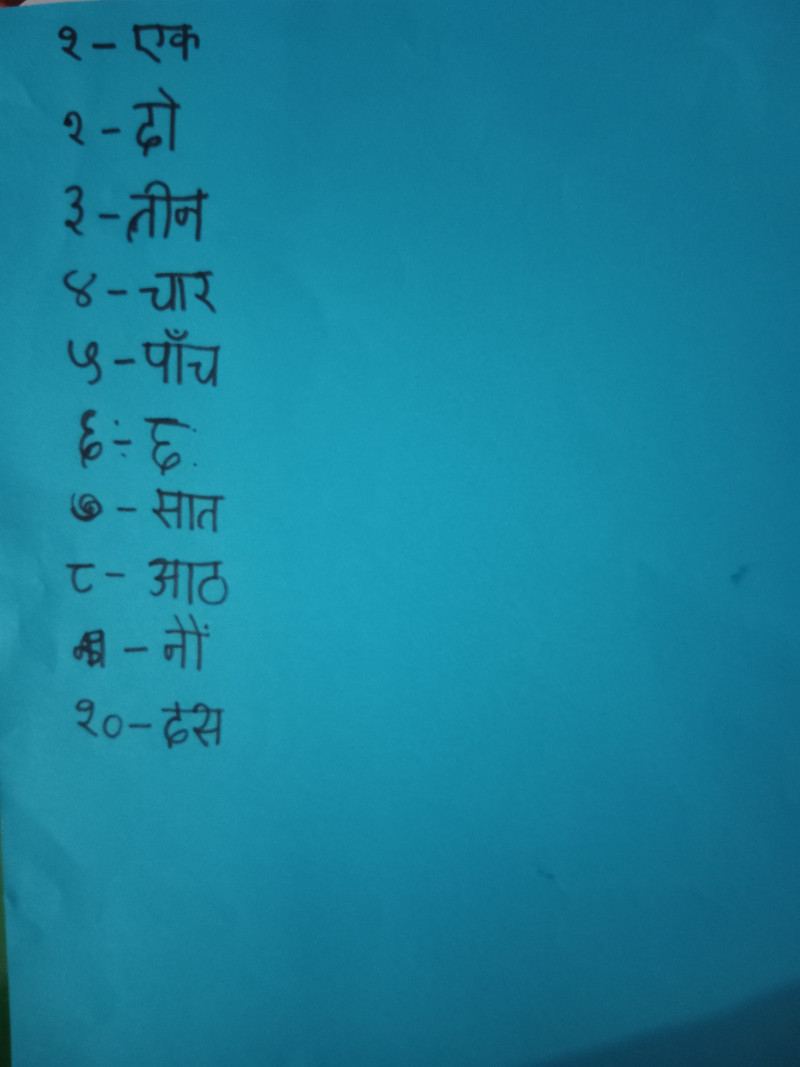 १ - एक
२ - दो
३ - तीन
४ - चार
५ - पाँच
६ :- छ:
७ - सात
८ - आठ
- नौं
१० - दस